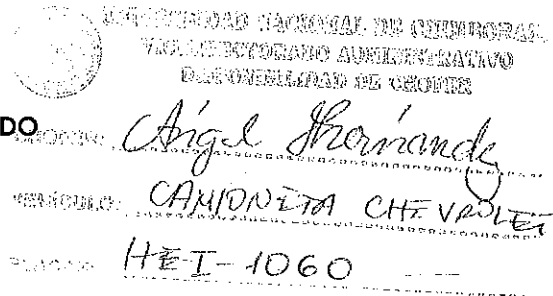 UNIVERSIDAD NACIONAL DE CHIMBORAZO
VICERRECTORADO ADMINISTRATIVO
DISPONIBILIDAD DE CHOFER
DO
CHOFER: Ángel
VEHÍCULO: CAMIONETA CHEVROLET
PLACAS: HEI-1060